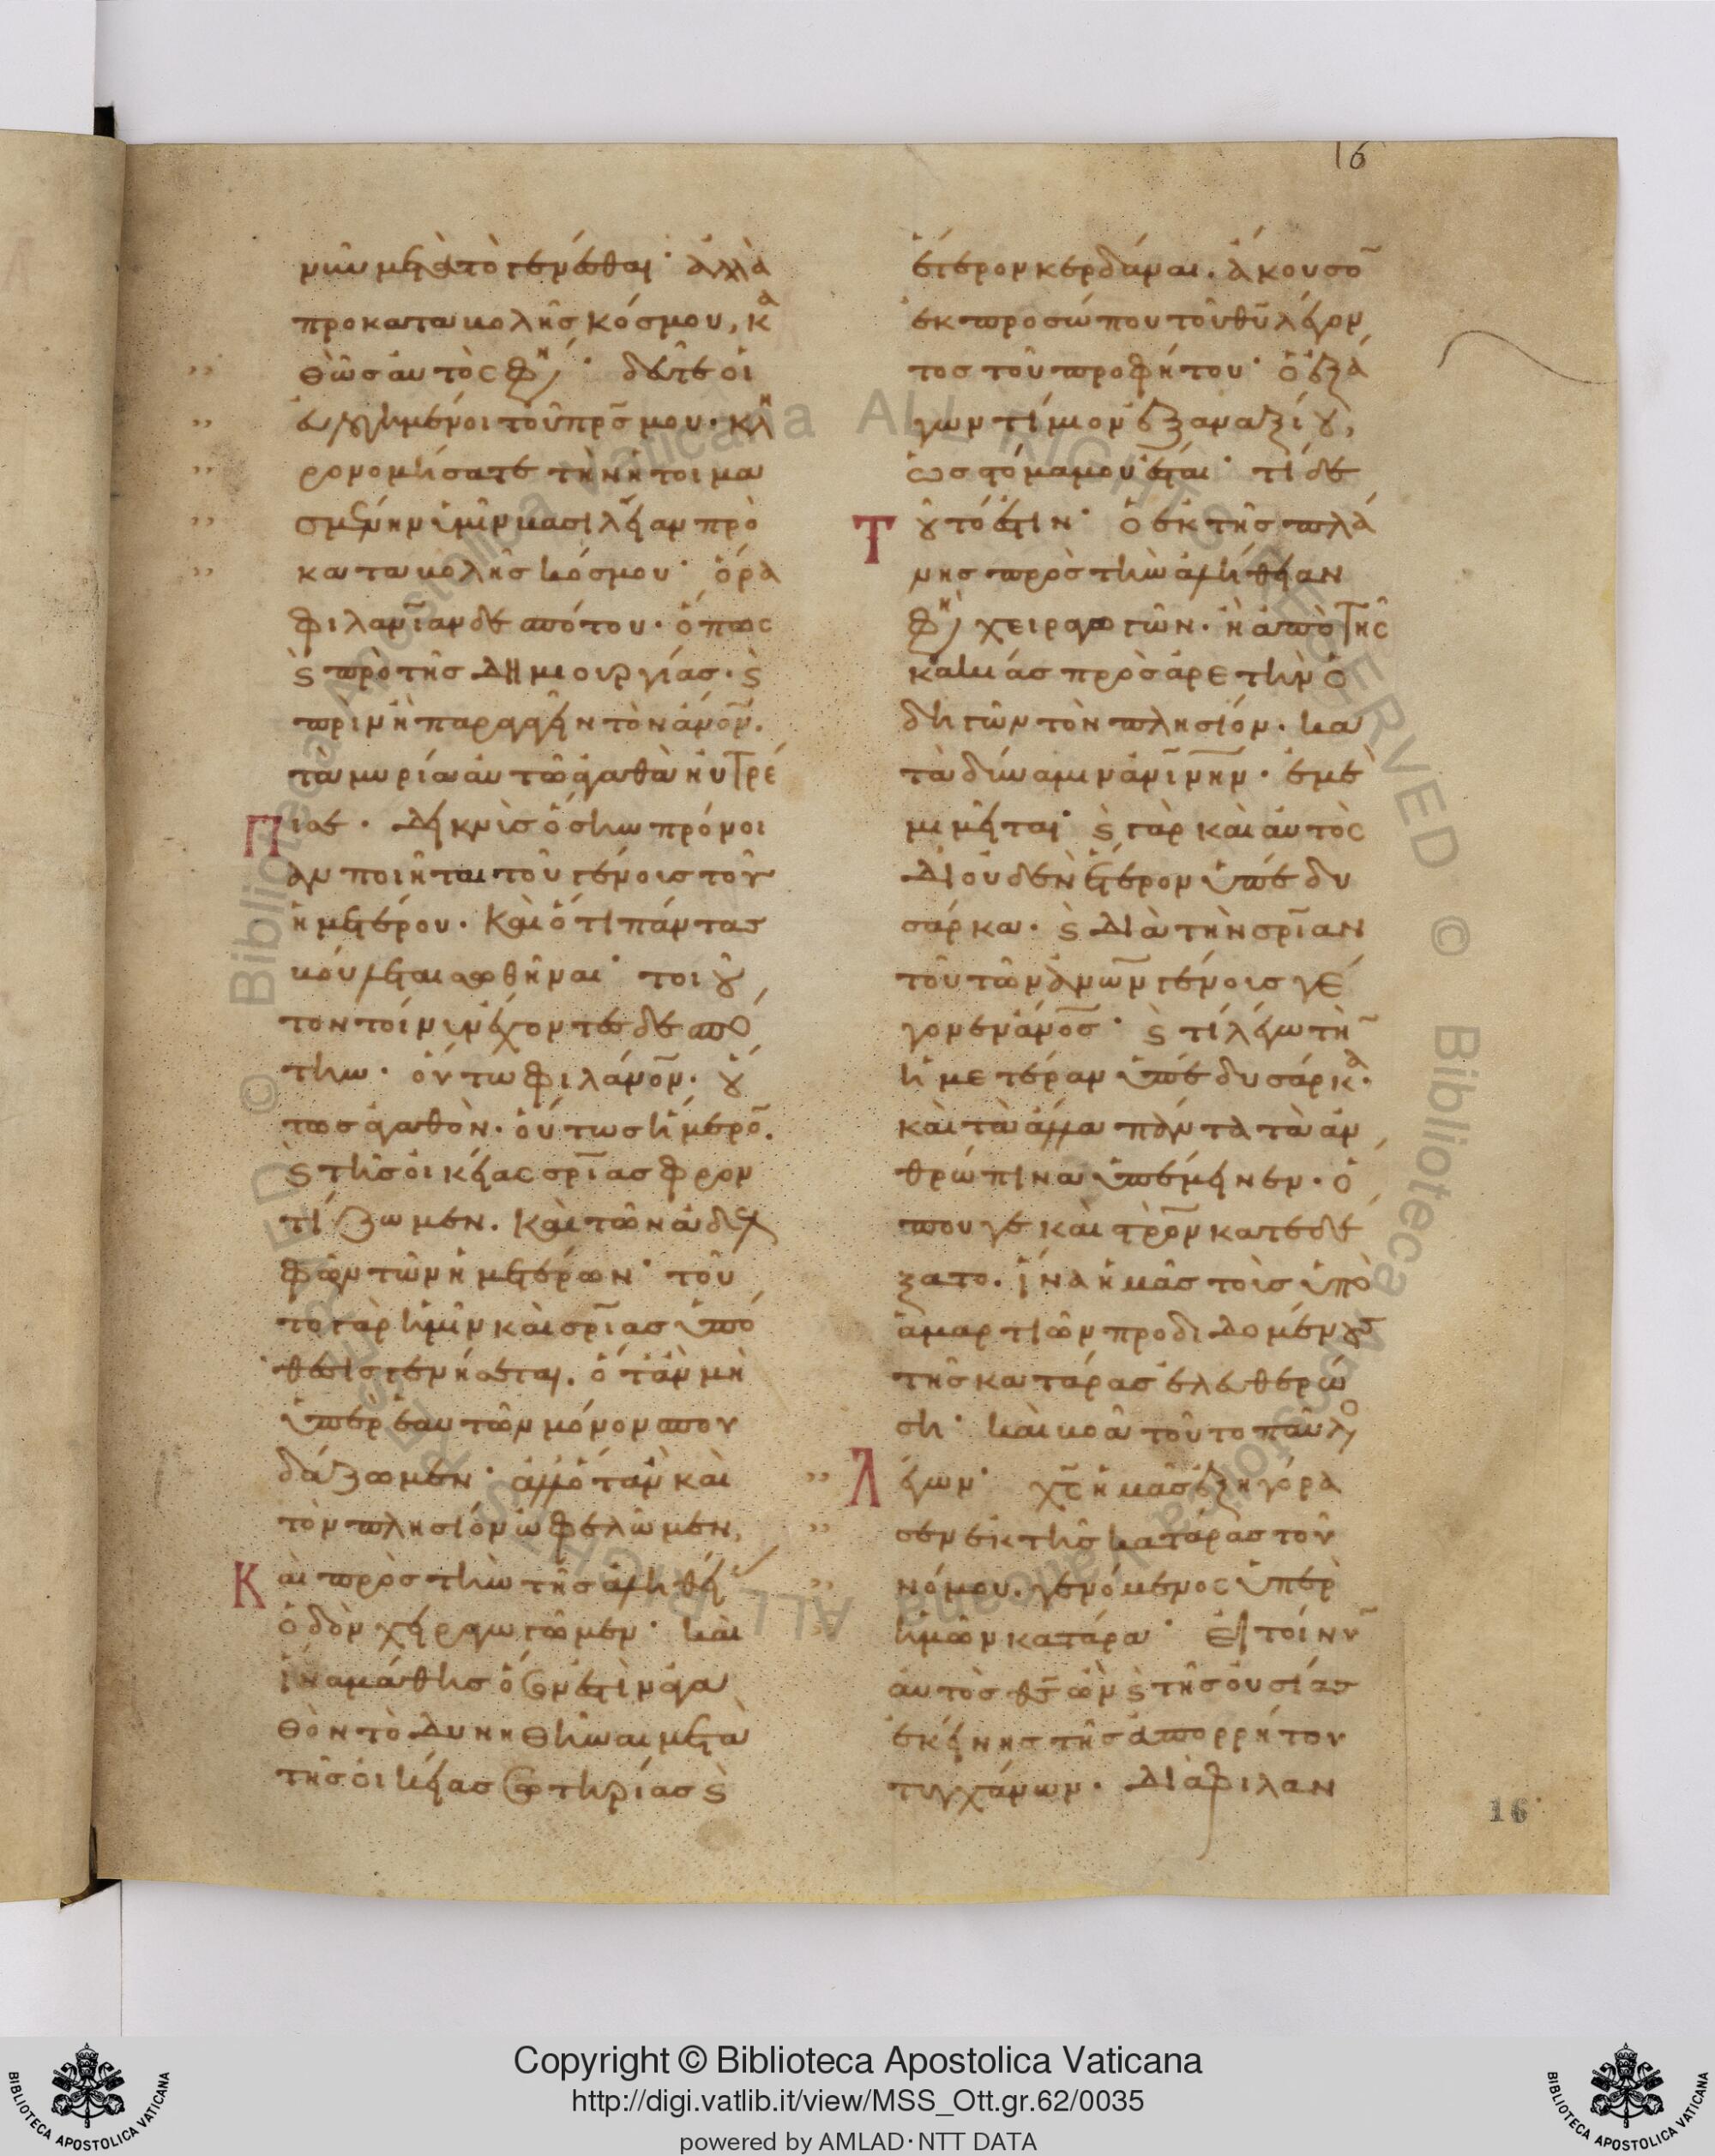 16
μὴν μετὰ τὸ γενέσθαι· ἀλλὰ
προκαταβολῆς κόσμου, κα
θὼς αὐτὸς φη´· δεῦτε οἱ
εὐλογημένοι τοῦ πρ̅ς μου· κλη
ρονομήσατε τὴν ἡτοιμα
σμένην ὑμῖν βασιλείαν πρὸ
καταβολῆς κόσμου· ὅρα
φιλαν̅ιαν δεσπότου· ὅπως
ϛ̀ πρὸ τῆς δημιουργίας· ϛ̀
πρὶν ἢ παραγαγεῖν τὸν ἄνο̅ν.
τὰ μυρία αὐτῶ ἀγαθὰ ηὐτρέ
Πισε· δεικνὺς ὅσην πρόνοι
αν ποιεῖται τοῦ γένους τοῦ
ἡμετέρου· καὶ ὅτι πάντας
βούλεται σωθῆναι· τοιοῦ
τον τοίνυν ἔχοντες δεσπό
την· οὕτω φιλάνο̅ν· οὕ
τως ἀγαθὸν· οὕτως ἥμερο̅.
ϛ̀ τῆς οἰκείας σρ̅ιας φρον
τίζωμεν. καὶ τῶν ἀδελ
φῶν τῶν ἡμετέρων· τοῦ
το γὰρ ἡμῖν καὶ σρ̅ιας ὑπό
θεσις γενήσεται. ὅταν μὴ
ὑπὲρ ἑαυτῶν μόνον σπου
δάζωμεν· ἀλλ' ὅταν καὶ
τὸν πλησίον ὠφελῶμεν,
Καὶ πρὸς τὴν τῆς ἀληθεί
ὁδὸν χειραγωγῶμεν· καὶ
ἵνα μάθης ὅσον ἐστὶν ἀγα
θὸν τὸ δυνηθῆναι μετὰ
τῆς οἰκείας σωτηρίας ϛ̀
ἕτερον κερδάναι. ἄκουσο̅
ἐκ προσώπου τοῦ θυ̅ λέγον
τος τοῦ προφήτου· ὁ ἐξά
γων τίμιον ἐξ ἀναξίου,
ὡς στόμα μου ἔσται· τί δὲ
Τοῦτό ἐστιν· ὁ ἐκ τῆς πλά
νης πρὸς τὴν ἀλήθειαν
φη´ χειραγωγῶν· ἢ ἀπὸ τῆς
κακίας πρὸς ἀρετὴν ὁ
δηγῶν τὸν πλησίον· κα
τὰ δύναμιν ἀν̅ινην· ἐμὲ
μιμεῖται· ϛ̀ γὰρ καὶ αὐτὸς
δι' οὐδὲν ἕτερον ὑπέδυ
σάρκα· ϛ̀ διὰ τὴν σρ̅ιαν
τοῦ τῶν ἀνω̅ν γένους γέ
γονεν ἄνο̅ς· ϛ̀ τί λέγω τὴ̅
ἡμετέραν ὑπέδυ σάρκα·
καὶ τὰ ἄλλα πάντα τὰ ἀν
θρώπινα ὑπέμεινεν· ὅ
που γε καὶ στρ̅ον κατεδέ
ξατο. ἵνα ἡμᾶς τοῖς ὑπὸ
ἁμαρτιῶν προδιδομένους
τῆς κατάρας ἐλευθερώ
ση· καὶ βοᾶ τοῦτο παῦλο
Λέγων· χς̅ ἡμᾶς ἐξηγόρα
σεν ἐκ τῆς κατάρας τοῦ
νόμου. γενόμενος ὑπὲρ
ἡμῶν κατάρα· εἰ τοίνυ̅
αὐτὸς θς̅ ὢν ϛ̀ τῆς οὐσίας
ἐκείνης τῆς ἀπορρήτου
τυγχάνων· διὰ φιλαν
16
© Biblioteca Apostolica Vaticana ALL RIGHTS RESERVED
Copyright © Biblioteca Apostolica Vaticana
http://digi.vatlib.it/view/MSS_Ott.gr.62/0035
powered by AMLAD·NTT DATA
BIBLIOTECA APOSTOLICA VATICANA
BIBLIOTECA APOSTOLICA VATICANA